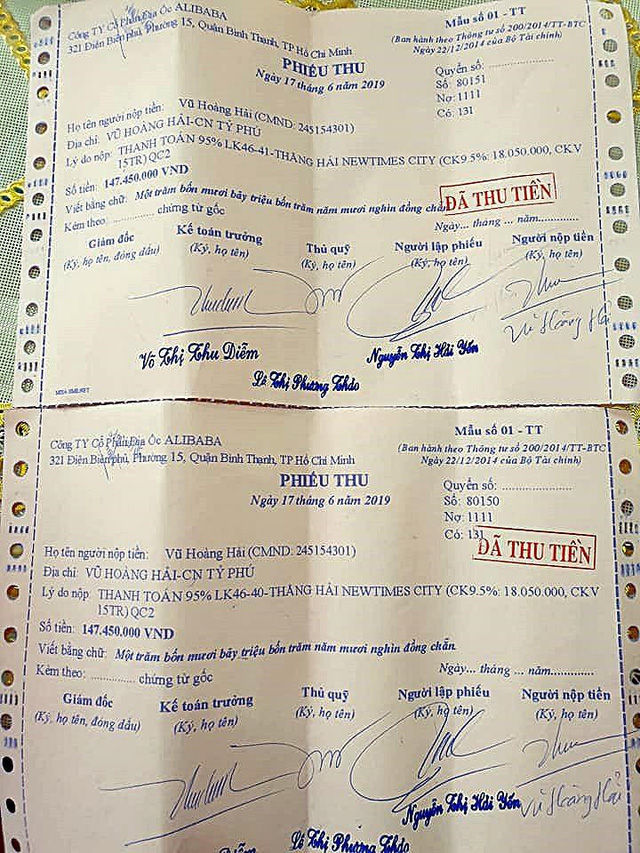 Công TY Cổ Phần Địa Ốc ALIBABA
321 Điện Biên phủ, Phường 15, Quận Bình Thạnh, TP Hồ Chí Minh
Mẫu số 01 - TT
(Ban hành theo Thông tư số 200/2014/TT-BTC
Ngày 22/12/2014 của Bộ Tài chính)
PHIẾU THU
Ngày 17 tháng 6 năm 2019
Quyển số: ....................
Số: 80151
Nợ: 1111
Có: 131
Họ tên người nộp tiền: Vũ Hoàng Hải (CMND: 245154301)
Địa chỉ: VŨ HOÀNG HẢI-CN TỶ PHÚ
Lý do nộp: THANH TOÁN 95% LK46-41-THẮNG HẢI NEWTIMES CITY (CK9.5%: 18.050.000, CKV
15TR) QC2
Số tiền: 147.450.000 VND
Viết bằng chữ: Một trăm bốn mươi bảy triệu bốn trăm năm mươi nghìn đồng chẵn
ĐÃ THU TIỀN
Kèm theo: .............. chứng từ gốc
Ngày... tháng ... năm............
Giám đốc Kế toán trưởng Thủ quỹ Người lập phiếu Người nộp tiền
(Ký, họ tên, đóng dấu) (Ký, họ tên) (Ký, họ tên) (Ký, họ tên) (Ký, họ tên)
Vũ Hoàng Hải
Võ Thị Thu Diễm Nguyễn Thị Hải Yến
Lê Thị Phương Thảo
MISA SME.NET
Công TY Cổ Phần Địa Ốc ALIBABA
321 Điện Biên phủ, Phường 15, Quận Bình Thạnh, TP Hồ Chí Minh
Mẫu số 01 - TT
(Ban hành theo Thông tư số 200/2014/TT-BTC
Ngày 22/12/2014 của Bộ Tài chính)
PHIẾU THU
Ngày 17 tháng 6 năm 2019
Quyển số: ....................
Số: 80150
Nợ: 1111
Có: 131
ĐÃ THU TIỀN
Họ tên người nộp tiền: Vũ Hoàng Hải (CMND: 245154301)
Địa chỉ: VŨ HOÀNG HẢI-CN TỶ PHÚ
Lý do nộp: THANH TOÁN 95% LK46-40-THẮNG HẢI NEWTIMES CITY (CK9.5%: 18.050.000, CKV
15TR) QC2
Số tiền: 147.450.000 VND
Viết bằng chữ: Một trăm bốn mươi bảy triệu bốn trăm năm mươi nghìn đồng chẵn
Kèm theo: .............. chứng từ gốc
Ngày... tháng ... năm............
Giám đốc Kế toán trưởng Thủ quỹ Người lập phiếu Người nộp tiền
(Ký, họ tên, đóng dấu) (Ký, họ tên) (Ký, họ tên) (Ký, họ tên) (Ký, họ tên)
Vũ Hoàng Hải
Nguyễn Thị Hải Yến
Diễm Lê Thị Phương Thảo